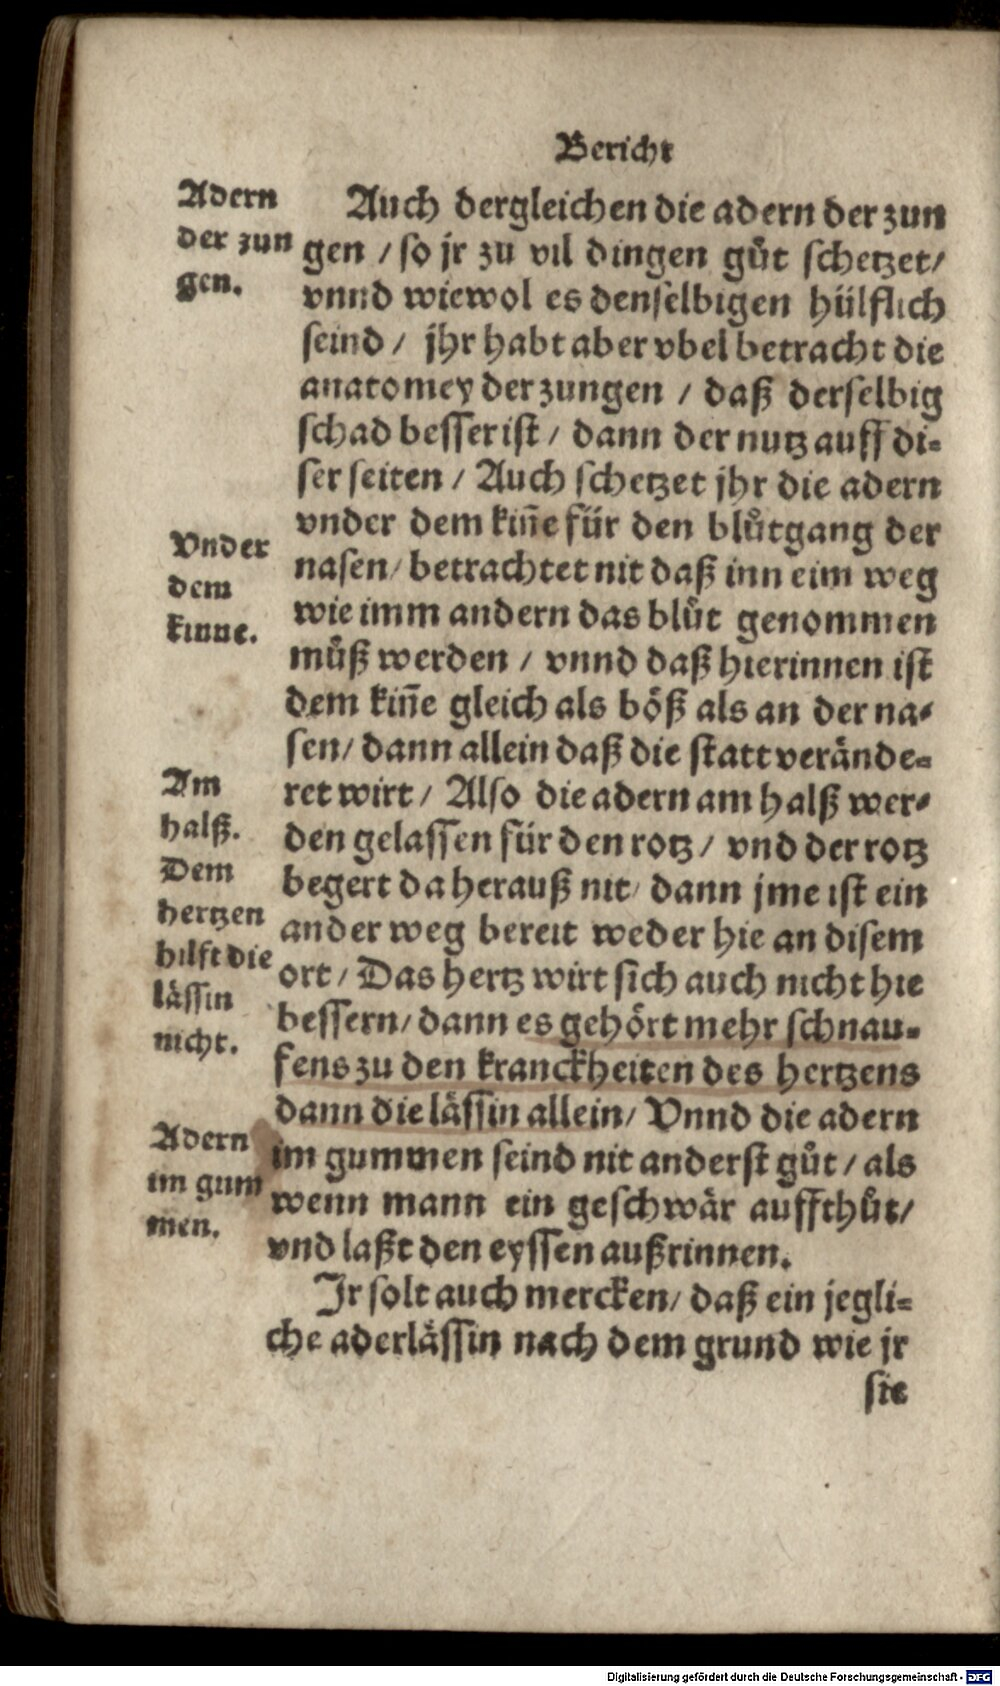 Bericht
Adern
der zun
gen.
Auch dergleichen die adern der zun
gen / so jr zu vil dingen gůt schetzet/
vnnd wiewol es denselbigen hülflich
seind / jhr habt aber vbel betracht die
anatomey der zungen / daß derselbig
schad besser ist / dann der nutz auff di-
ser seiten / Auch schetzet jhr die adern
vnder dem kiñe für den blůtgang der
nasen/ betrachtet nit daß inn eim weg
wie imm andern das blůt genommen
můß werden / vnnd daß hierinnen ist
dem kiñe gleich als böß als an der na-
sen/ dann allein daß die statt verände-
ret wirt / Also die adern am halß wer-
den gelassen für den rotz / vnd der rotz
begert da herauß nit/ dann jme ist ein
ander weg bereit weder hie an disem
ort / Das hertz wirt sich auch nicht hie
bessern/ dann es gehört mehr schnau-
fens zu den kranckheiten des hertzens
dann die lässin allein/ Vnnd die adern
im gummen seind nit anderst gůt / als
wenn mann ein geschwär auffthůt/
vnd laßt den eyssen außrinnen.
Vnder
dem
kinne.
Am
halß.
Dem
hertzen
hilft die
lässin
nicht.
Adern
im gum
men.
Jr solt auch mercken/ daß ein jegli-
che aderlässin nach dem grund wie jr
sie
Digitalisierung gefördert durch die Deutsche Forschungsgemeinschaft - DFG